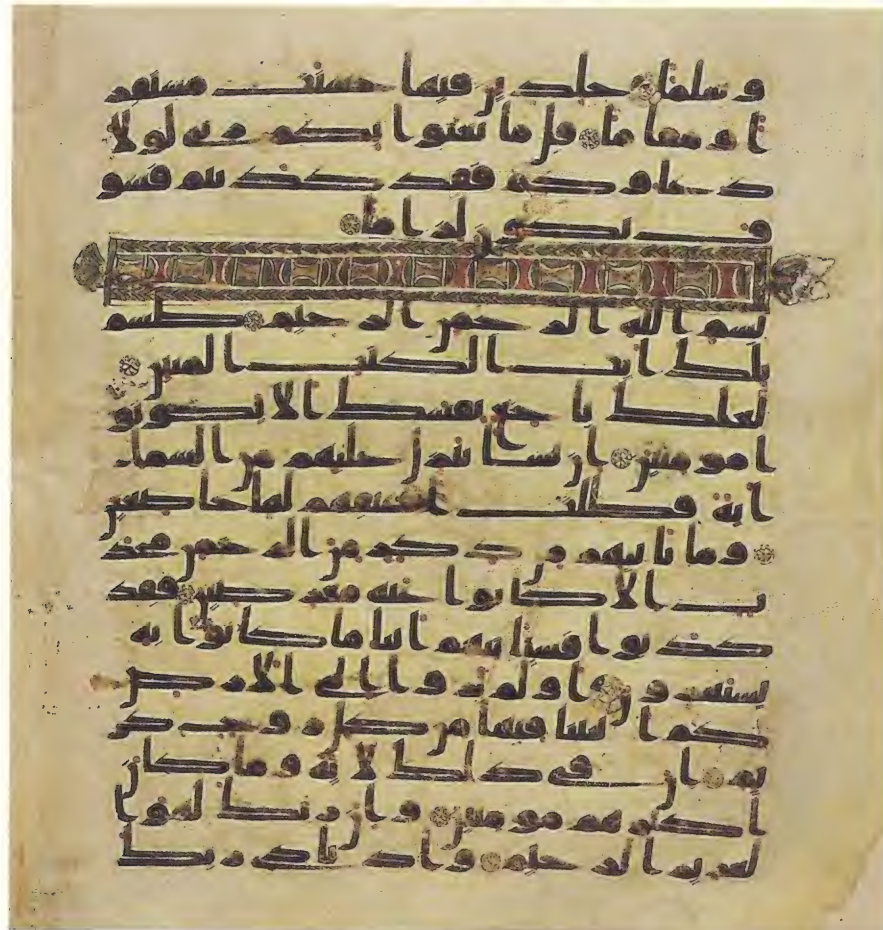 وسلما خلدين فيها حسنت مستقر
ا ومقاما قل ما يعبوا بكم ربي لولا
دعاوكم فقد كذبتم فسو
ف يكون لزاما
بسم الله الرحمن الرحيم طسم
تلك ايت الكتب المبين
لعلك باخع نفسك الا يكونو
ا مومنين ان نشا ننزل عليهم من السما
اية فظلت اعنقهم لها خاضعين
وما ياتيهم من ذكر من الرحمن محد
ث الا كانوا عنه معرضين فقد
كذبوا فسياتيهم انبا ما كانوا به
يستهزون او لم يروا الى الارض
كم انبتنا فيها من كل زوج كر
يم ان في ذلك لاية وما كان
اكثرهم مومنين وان ربك لهو ا
لعزيز الرحيم واذ نادى ربك